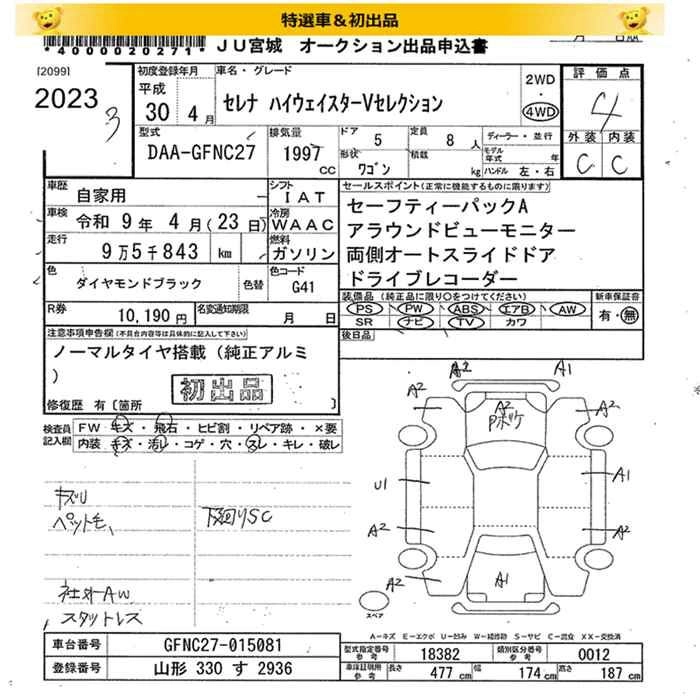 特選車＆初出品
*4000000020271* JU宮城 オークション出品申込書
[2099]
2023
3
初度登録年月
平成
30年 4月
車名・グレード
セレナ ハイウェイスターVセレクション
2WD
・
4WD
評価点
4
外装 内装
C C
型式
DAA-GFNC27
排気量
1997 CC
ドア 5
定員 8人
形状 ワゴン
積載 kg
ディーラー・並行
モデル年式 年
ハンドル 左・右
車歴 自家用
シフト IAT
車検 令和 9年 4月(23日)
冷房 WAAC
走行 9万5千843 km
燃料 ガソリン
色 ダイヤモンドブラック 色替
色コード G41
R券 10,190円
名変通知期限 月 日
セールスポイント(正常に機能するものに限ります)
セーフティーパックA
アラウンドビューモニター
両側オートスライドドア
ドライブレコーダー
装備品(純正品に限り○をつけてください)
PS PW ABS エアB AW
SR ナビ TV カワ
新車保証書
有・無
後日品
注意事項申告欄(不具合内容等は具体的に記入して下さい)
ノーマルタイヤ搭載(純正アルミ
)
初出品
修復歴 有〔箇所 〕
検査員記入欄
FW キズ・飛石・ヒビ割・リペア跡・×要
内装・キズ・汚レ・コゲ・穴・スレ・キレ・破レ
キズU
ペット毛、
下廻りSC
社外AW
スタットレス
A2 A1
A2 A2 A2
Pボケ
U1 A1
A2 A2
A2 A1
スペア
A－キズ E－エクボ U－凹み W－補修跡 S－サビ C－腐食 XX－交換済
車台番号 GFNC27-015081
登録番号 山形 330 す 2936
型式指定番号 参考 18382
類別区分番号 参考 0012
車庫証明用 参考 長さ 477 cm 幅 174 cm 高さ 187 cm